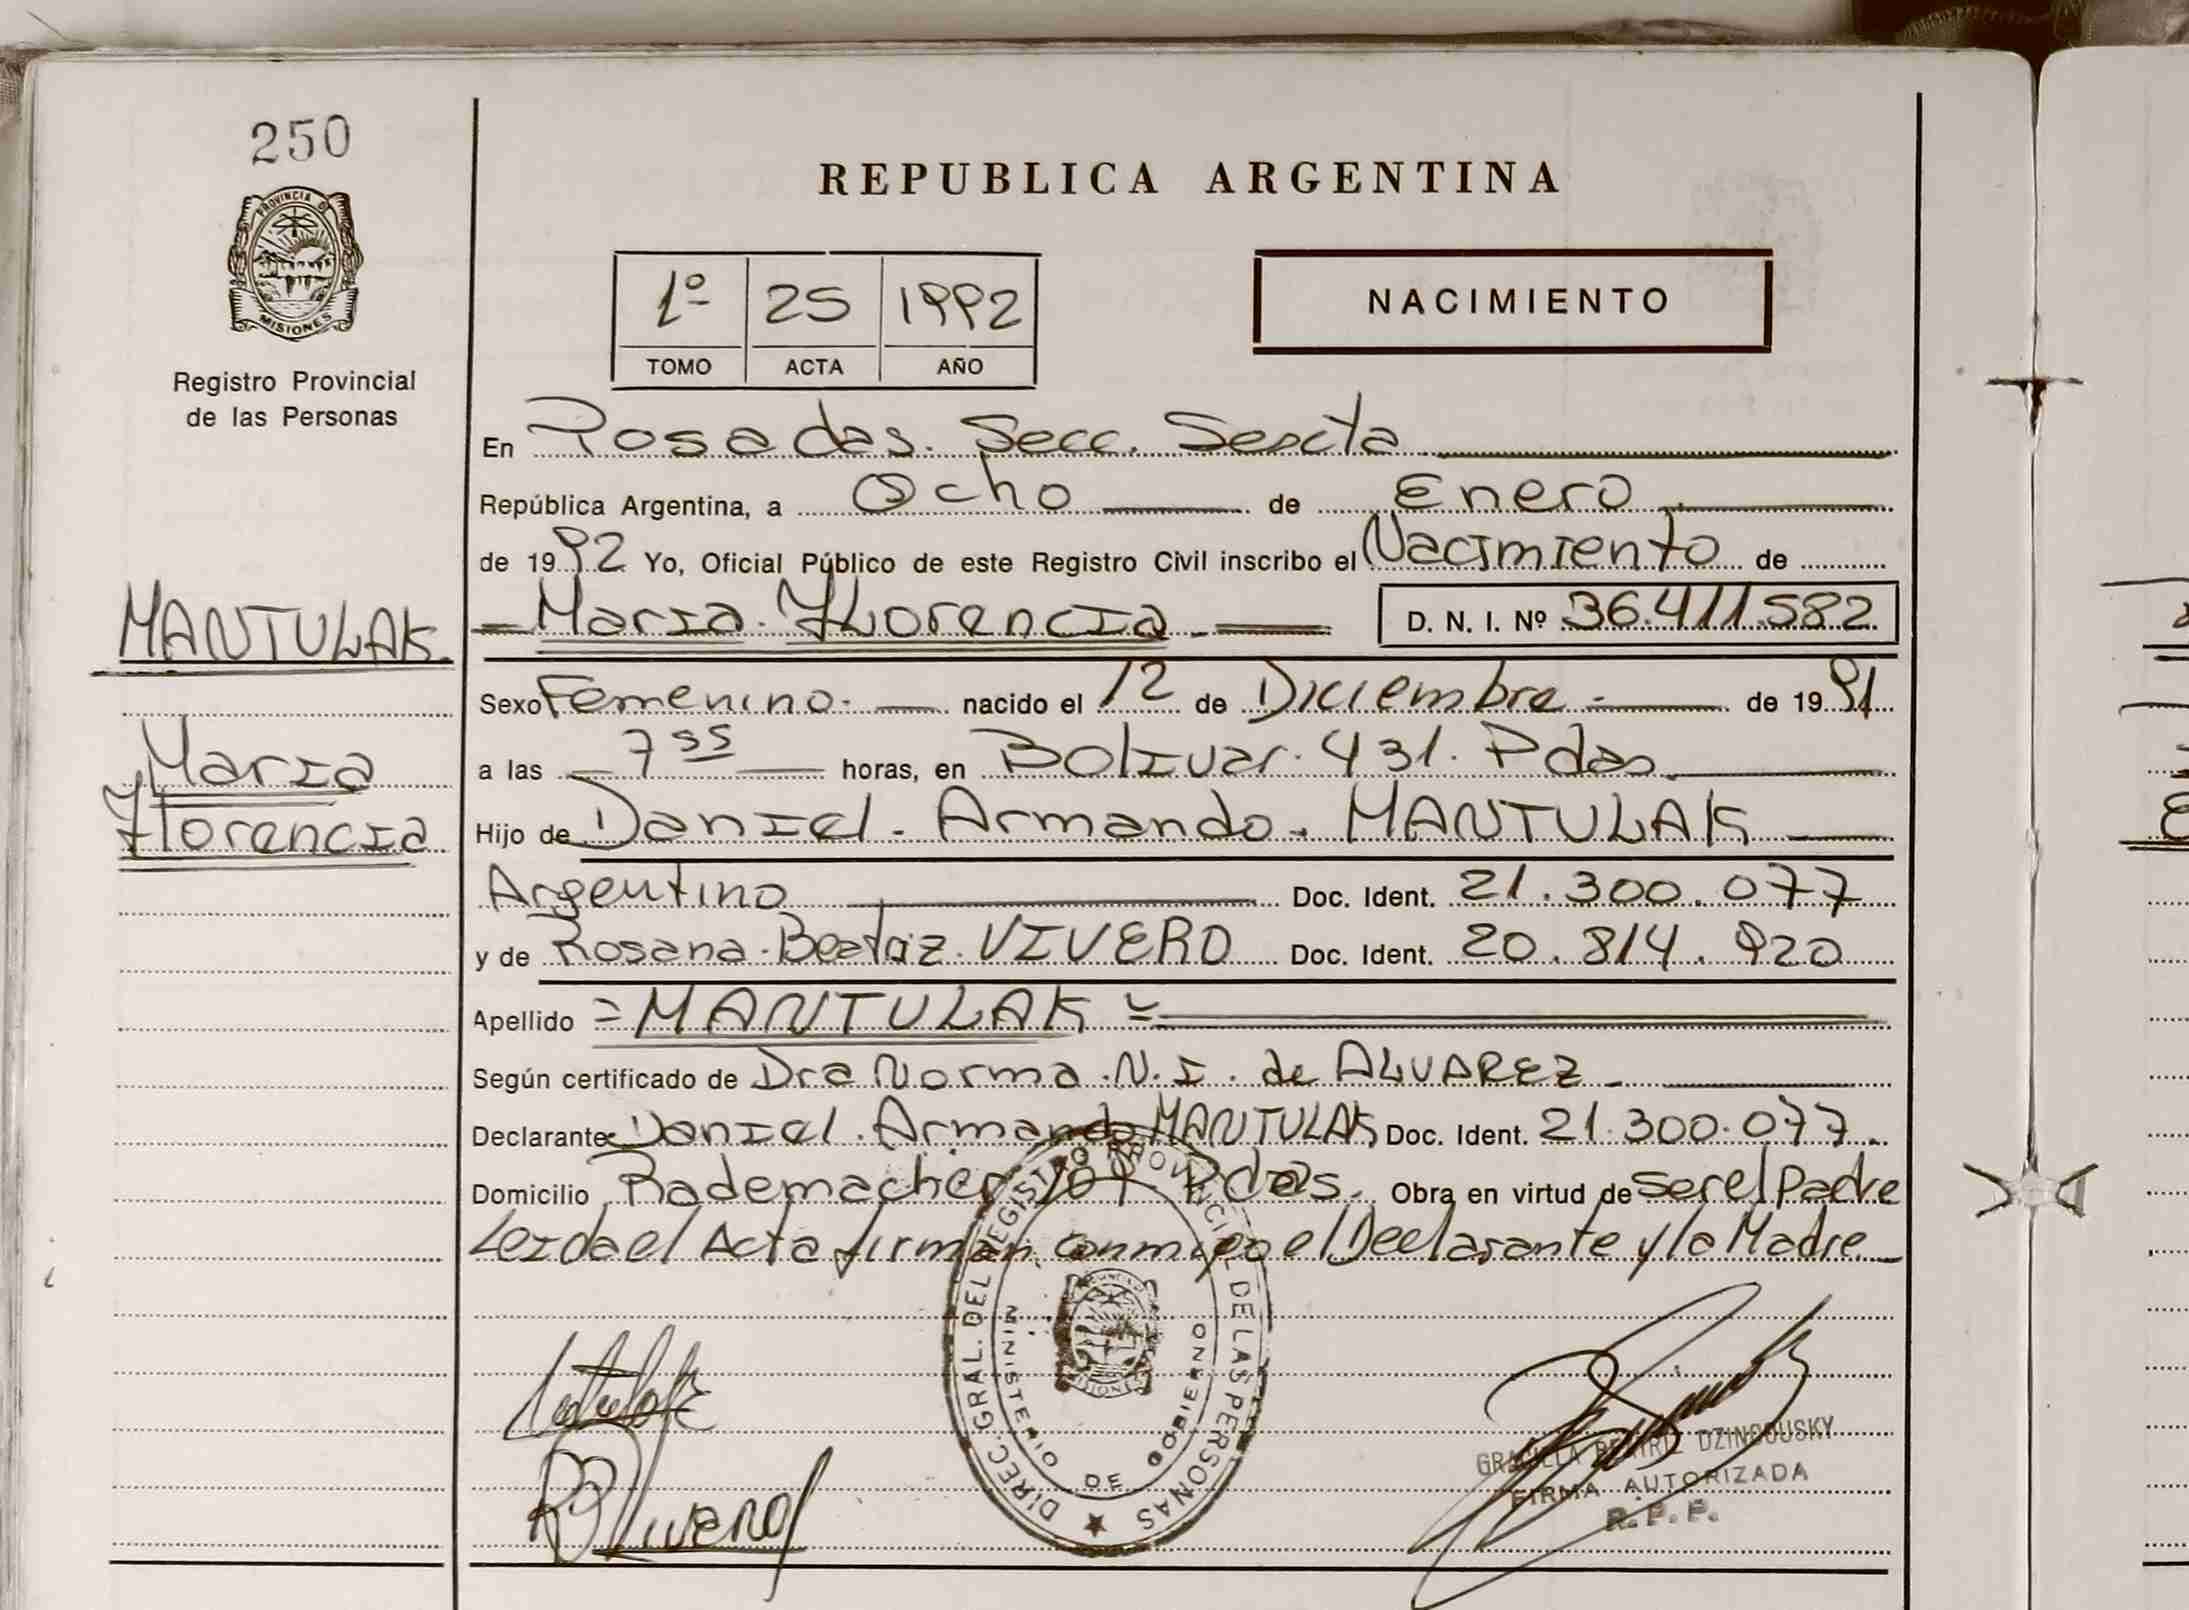 250
PROVINCIA DE
MISIONES
Registro Provincial
de las Personas
REPUBLICA ARGENTINA
1º 25 1992
TOMO ACTA AÑO
NACIMIENTO
En Posadas. Secc. Sexta
República Argentina, a Ocho de Enero
de 1992 Yo, Oficial Público de este Registro Civil inscribo el Nacimiento de
MANTULAK
Maria Florencia D. N. I. Nº 36.411.582
Sexo Femenino nacido el 12 de Diciembre de 1991
Maria
a las 7 55 horas, en Bolivar. 431. Pdas.
Florencia
Hijo de Daniel. Armando. MANTULAK
Argentino Doc. Ident. 21.300.077
y de Rosana Beatriz VIVERO Doc. Ident. 20.814.920
Apellido = MANTULAK =
Según certificado de Dra Norma N. I. de ALVAREZ
Declarante Daniel. Armando MANTULAK Doc. Ident. 21.300.077
Domicilio Rademacher Pdas. Obra en virtud de ser el Padre
Leida el Acta firman conmigo el Declarante y la Madre
DIREC. GRAL. DEL REGISTRO PROVINCIAL DE LAS PERSONAS
MINISTERIO DE GOBIERNO
MISIONES
RBVivero
GRACIELA BEATRIZ DZINDOUSKY
FIRMA AUTORIZADA
R. P. P.